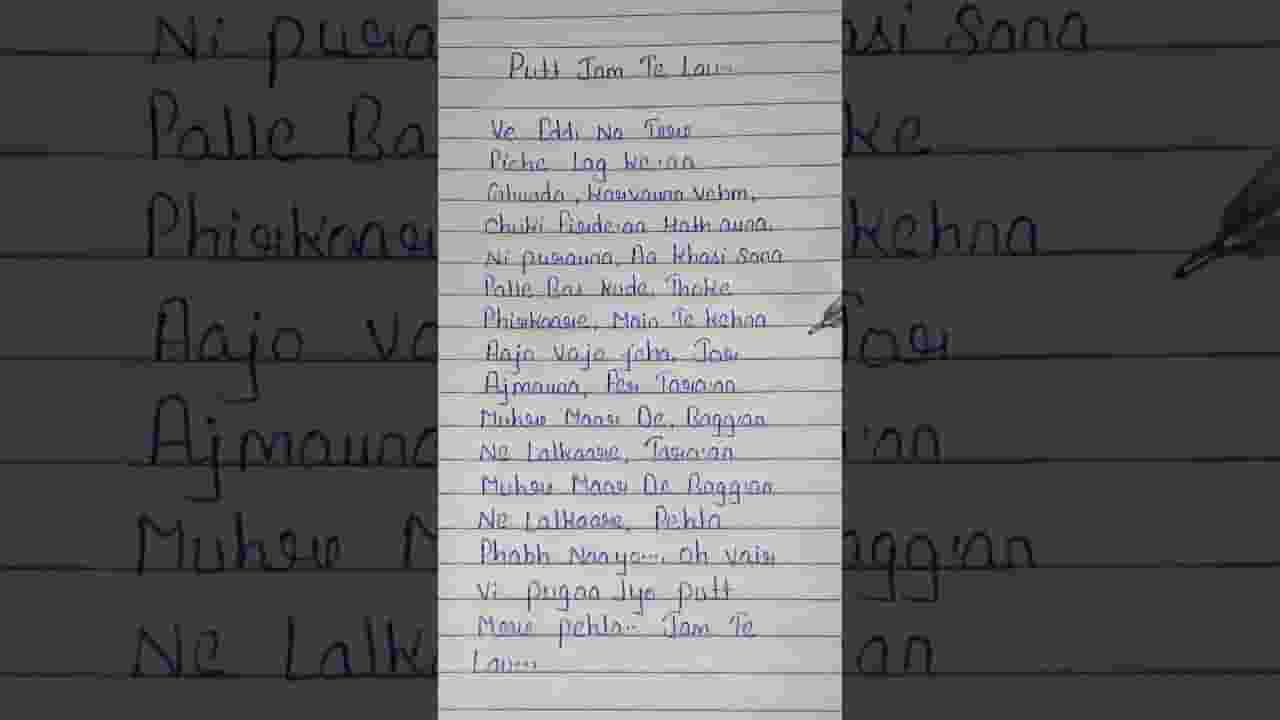 Putt Jam Te Lau...
Ve Eddi Na Taur
Piche Lag ke aa
Karvauna Vehm,
Chuki Firde aa Hath auna,
Ni purauna, Aa khasi Sona
Palle Bai kude, Thoke
Phirkaare, Main Te kehna
Aaja Vaja Jeha, Tar
Ajmauna, Per Taariaan
Muhre Maar De, Baggian
Ne Lalkaare, Taariaan
Muhre Maar De Baggian
Ne Lalkaare, Pehla
Phabh Naaya..., oh vair
Vi pugaa Jya putt
Mere pehla... Jam Te
Lau...